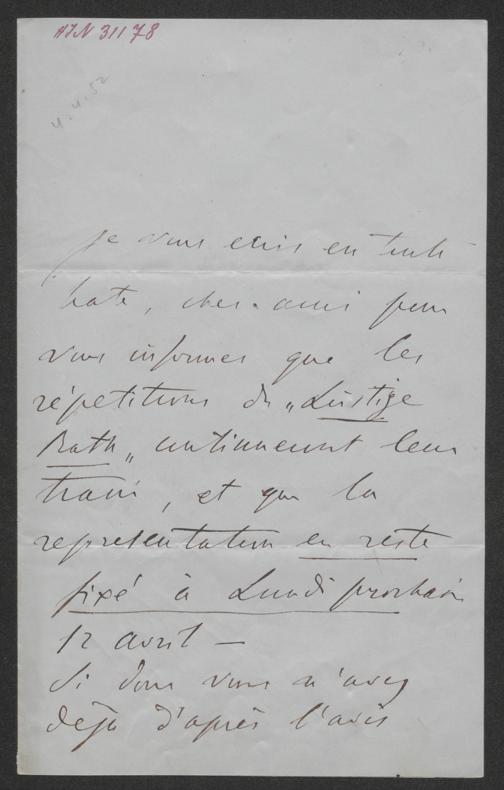 HIN 31178
4.4.52
je vous écris en toute
hate, cher ami pour
vous informer que les
répétitions du „Lustige
Rath„ continuent leur
train, et que la
representation en reste
fixé à Lundi prochain
12 avril —
Si donc vous n'avez
déjà d'après l'avis